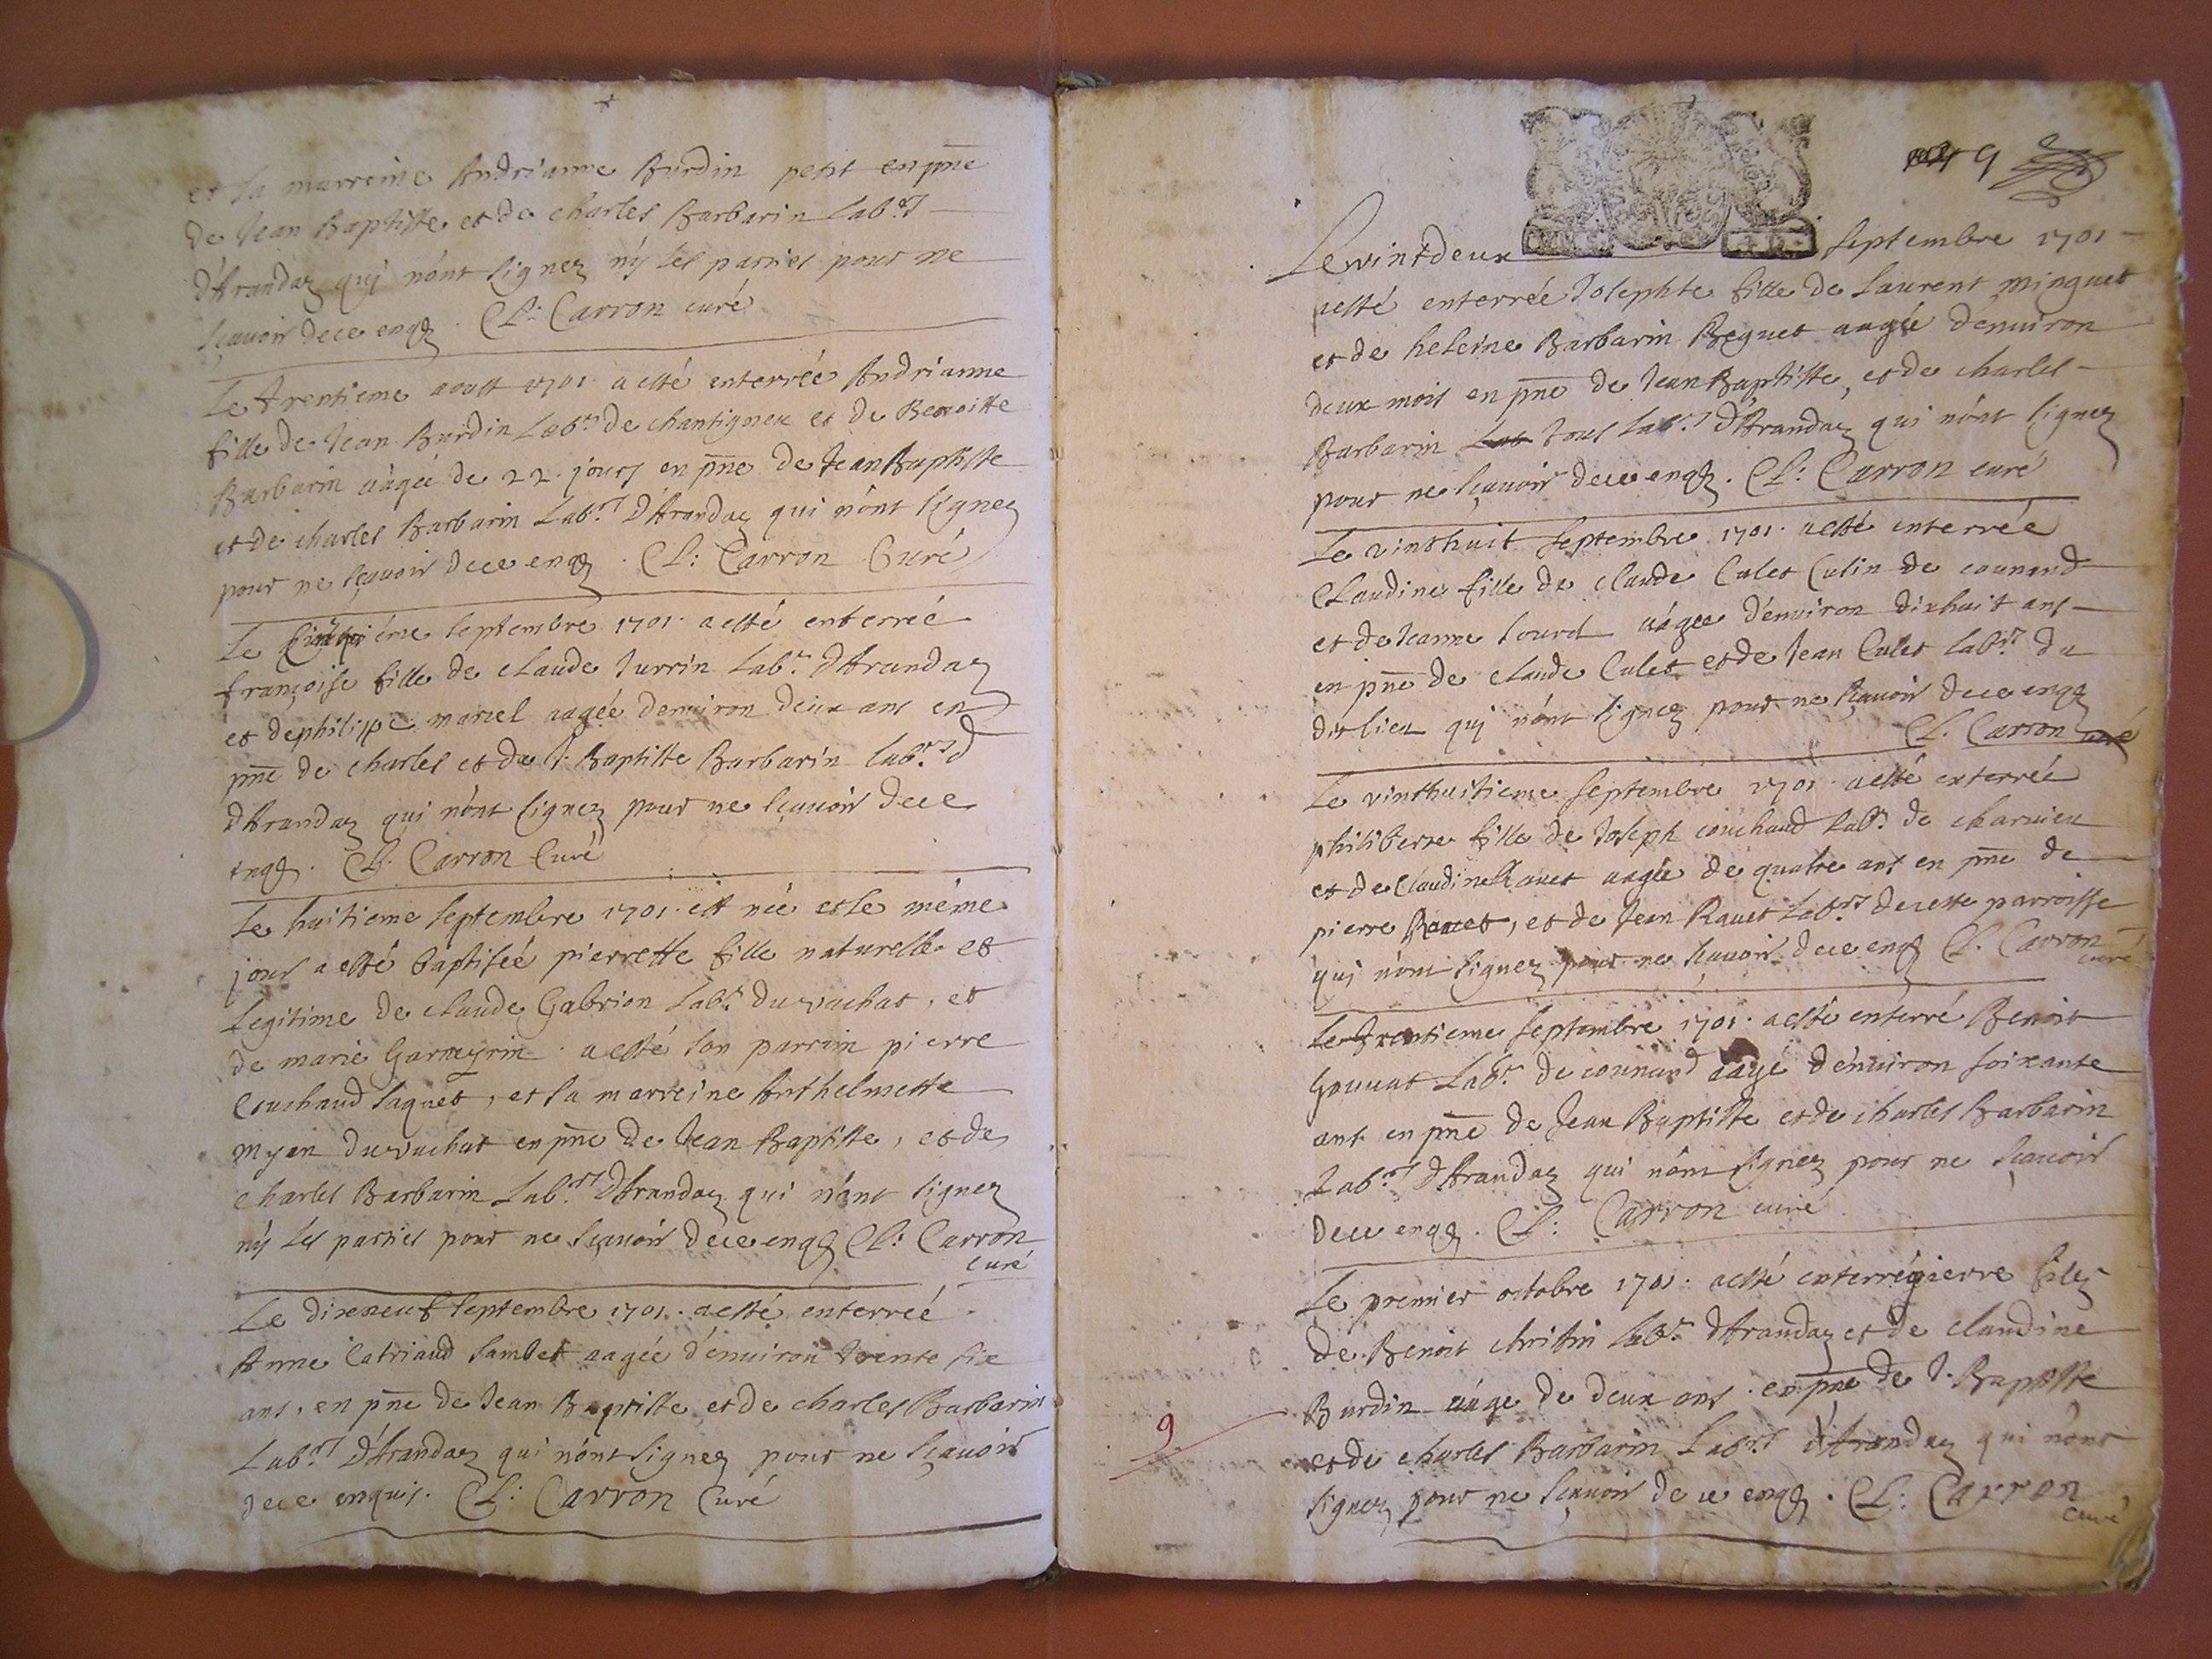 et la marreine Andrianne Burdin petit en pñe
de Jean Baptiste et de charles Barbarin Labrs
d'Arandaz qui n'ont signez ny les parties pour ne
sçavoir de ce enqs. Cl: Carron curé
Le trentieme aoust 1701. a esté enterrée Andrianne
fille de Jean Burdin Labr. de chantigneu et de Benoitte
Barbarin aagée de 22. jours en pñe de Jean Baptiste
et de charles Barbarin Labrs d'Arandaz qui n'ont signez
pour ne sçavoir de ce enqs. Cl: Carron Curé
Le septembre 1701. a esté enterrée
françoise fille de claude Jurrin Labr. d'Arandaz
et de philippe marcel aagée denviron deux ans en
pñe de charles et de J. Baptiste Barbarin labrs d
d'Arandaz qui n'ont signez pour ne sçavoir de ce
enqs. Cl. Carron Curé
Le huitieme septembre 1701. est née et le méme
jour a esté baptisée pierrette fille naturelle et
Legitime de claude Gabrion Labr. du vachat, et
de marie Garneyrin. a esté son parrain pierre
Couchaud Jaquet, et la marreine Anthelmette
myen du vachat en pñe de Jean Baptiste, et de
charles Barbarin Labrs d'Arandaz qui n'ont signez
ny les parties pour ne sçavoir de ce enqs Cl: Carron
curé
Le dixneuf septembre 1701. a esté enterrée
Anne Catriaud Sambet aagée d'environ trente six
ans, en pñe de Jean Baptiste et de charles Barbarin
Labrs d'Arandaz qui n'ont signez pour ne sçavoir
de ce enquis. Cl: Carron Curé
9
Le vint deux septembre 1701
a esté enterrée Josephte fille de Laurent minguet
et de heleine Barbarin Beguet aagée denviron
deux mois en pñe de Jean Baptiste, et de charles
Barbarin Lab tous Labrs d'Arandaz qui n'ont signez
pour ne sçavoir de ce enqs. Cl: Carron curé
Le vint huit septembre 1701. a esté enterrée
Claudine fille de claude Culet Culin de counand
et de Jeanne Sourd aagée d'environ dixhuit ans
en pñe de claude Culet et de Jean Culet labrs du
dit lieu qui n'ont signez pour ne sçavoir de ce enqs
Cl. Carron curé
Le vinthuitieme septembre 1701. a esté enterrée
philiberte fille de Joseph couchaud Labr. de charvieu
et de Claudine Ravet aagée de quatre ans en pñe de
pierre Ravet, et de Jean Ravet Labrs de cette parroisse
qui n'ont signez pour ne sçavoir de ce enqs Cl. Carron
curé
Le trentieme septembre 1701. a esté enterré Benoit
Gouvat Labr. de counand aagé d'environ soixante
ans en pñe de Jean Baptiste et de charles Barbarin
Labrs d'Arandaz qui n'ont signez pour ne sçavoir
de ce enqs. Cl: Carron curé
Le premier octobre 1701. a esté enterré pierre filz
de Benoit christin labr. d'Arandaz et de claudine
Burdin aagé de deux ans. en pñe de J. Baptiste
9
et de charles Barbarin Labrs d'Arandaz qui n'ont
signez pour ne sçavoir de ce enqs. Cl: Carron
curé